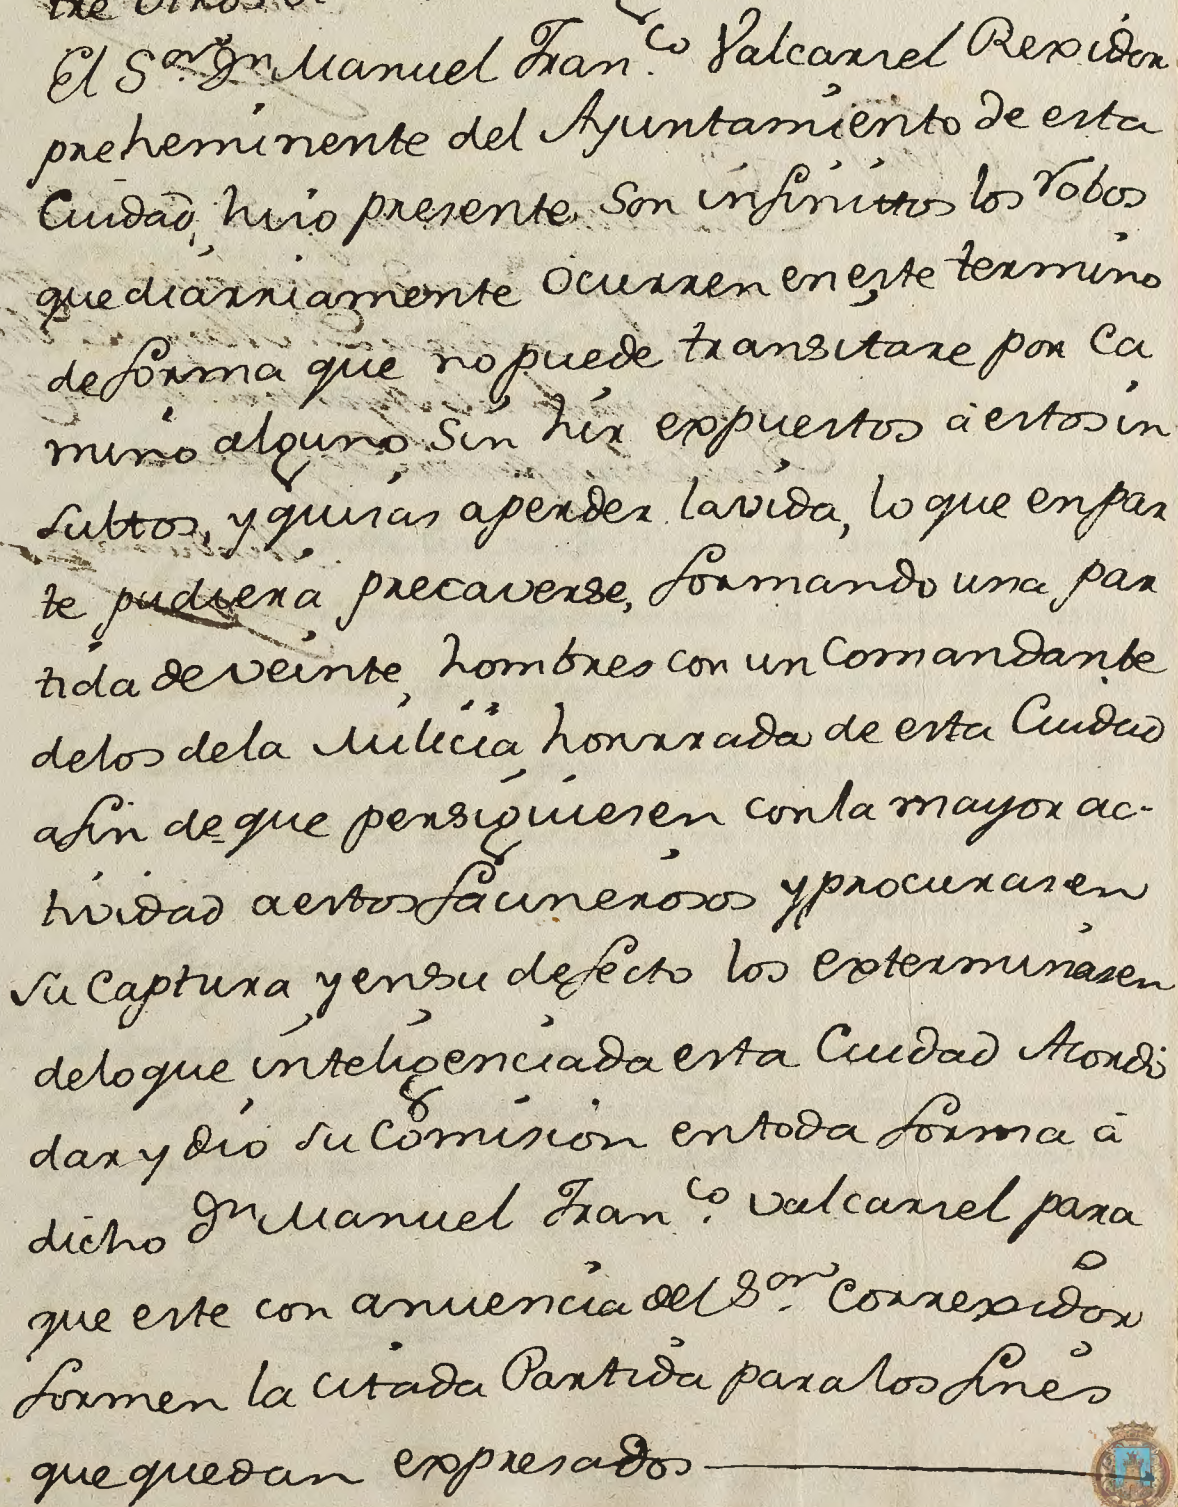 El S.or Dn Manuel Fran.co Valcarsel Rexidor
preheminente del Ayuntamiento de esta
Cuidad, hiso presente, Son infinittos los robos
que diarriamente Ocurren en este termino
de forma que no puede transitarse por Ca
mino alguno Sin hir expuestos á estos in
sulttos, y quisas a perder la vida, lo que en par
te pudiera precaverse, formando una par
tida de veinte hombres con un Comandante
de los de la Milicia honrrada de esta Cuidad
a fin de que persiguiesen con la mayor ac-
tividad a estos facinerosos y procurasen
su Captura y en su defecto los exterminasen
de lo que inteligenciada esta Cuidad Acordó
dar y dio su Comision en toda forma á
dicho Dn Manuel Fran.co Valcarsel para
que este con anuencia del S.or Correxidor
formen la citada Partida para los fines
que quedan expresados